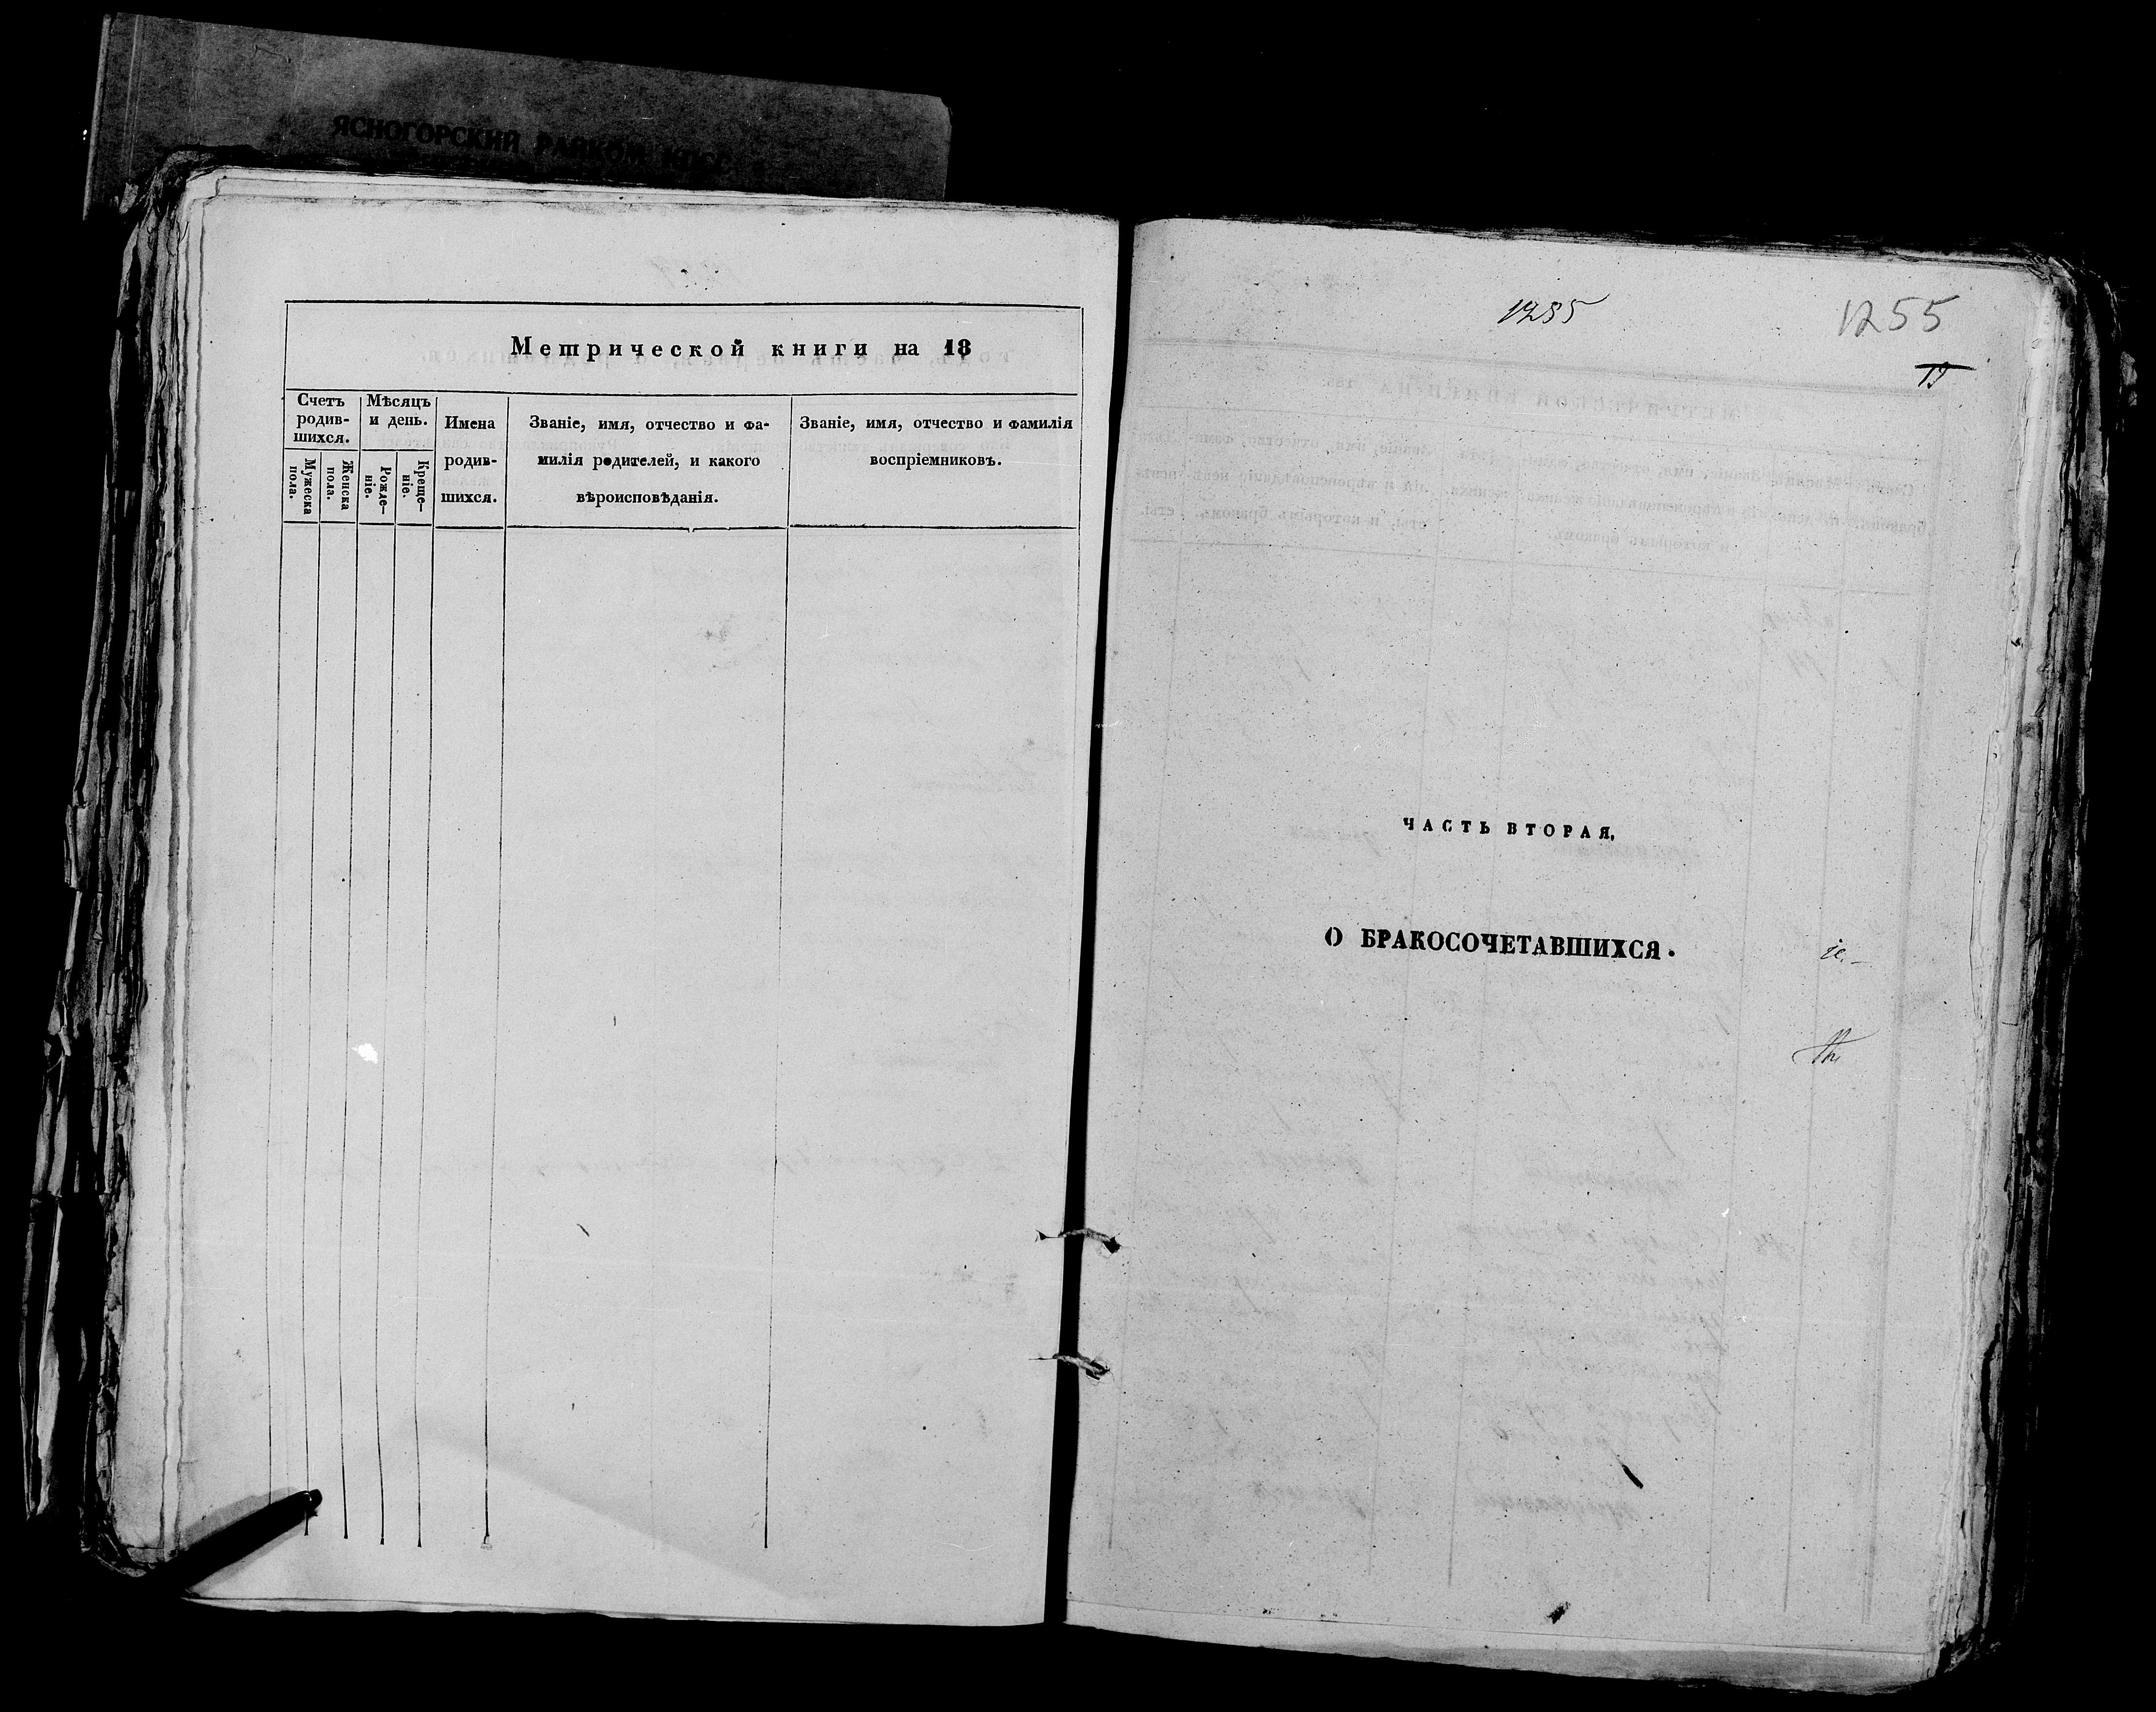 ЯСНОГОРСКИЙ РАЙКОМ КПСС
Метрической книги на 18
Счетъ родив-шихся.
Мужеска пола.
Женска пола.
Мѣсяцъ и день.
Рожде-ніе.
Креще-ніе.
Имена
родив-
шихся.
Званіе, имя, отчество и фа-
милія родителей, и какого
вѣроисповѣданія.
Званіе, имя, отчество и фамилія
воспріемниковъ.
1255
1255
ЧАСТЬ ВТОРАЯ,
О БРАКОСОЧЕТАВШИХСЯ.